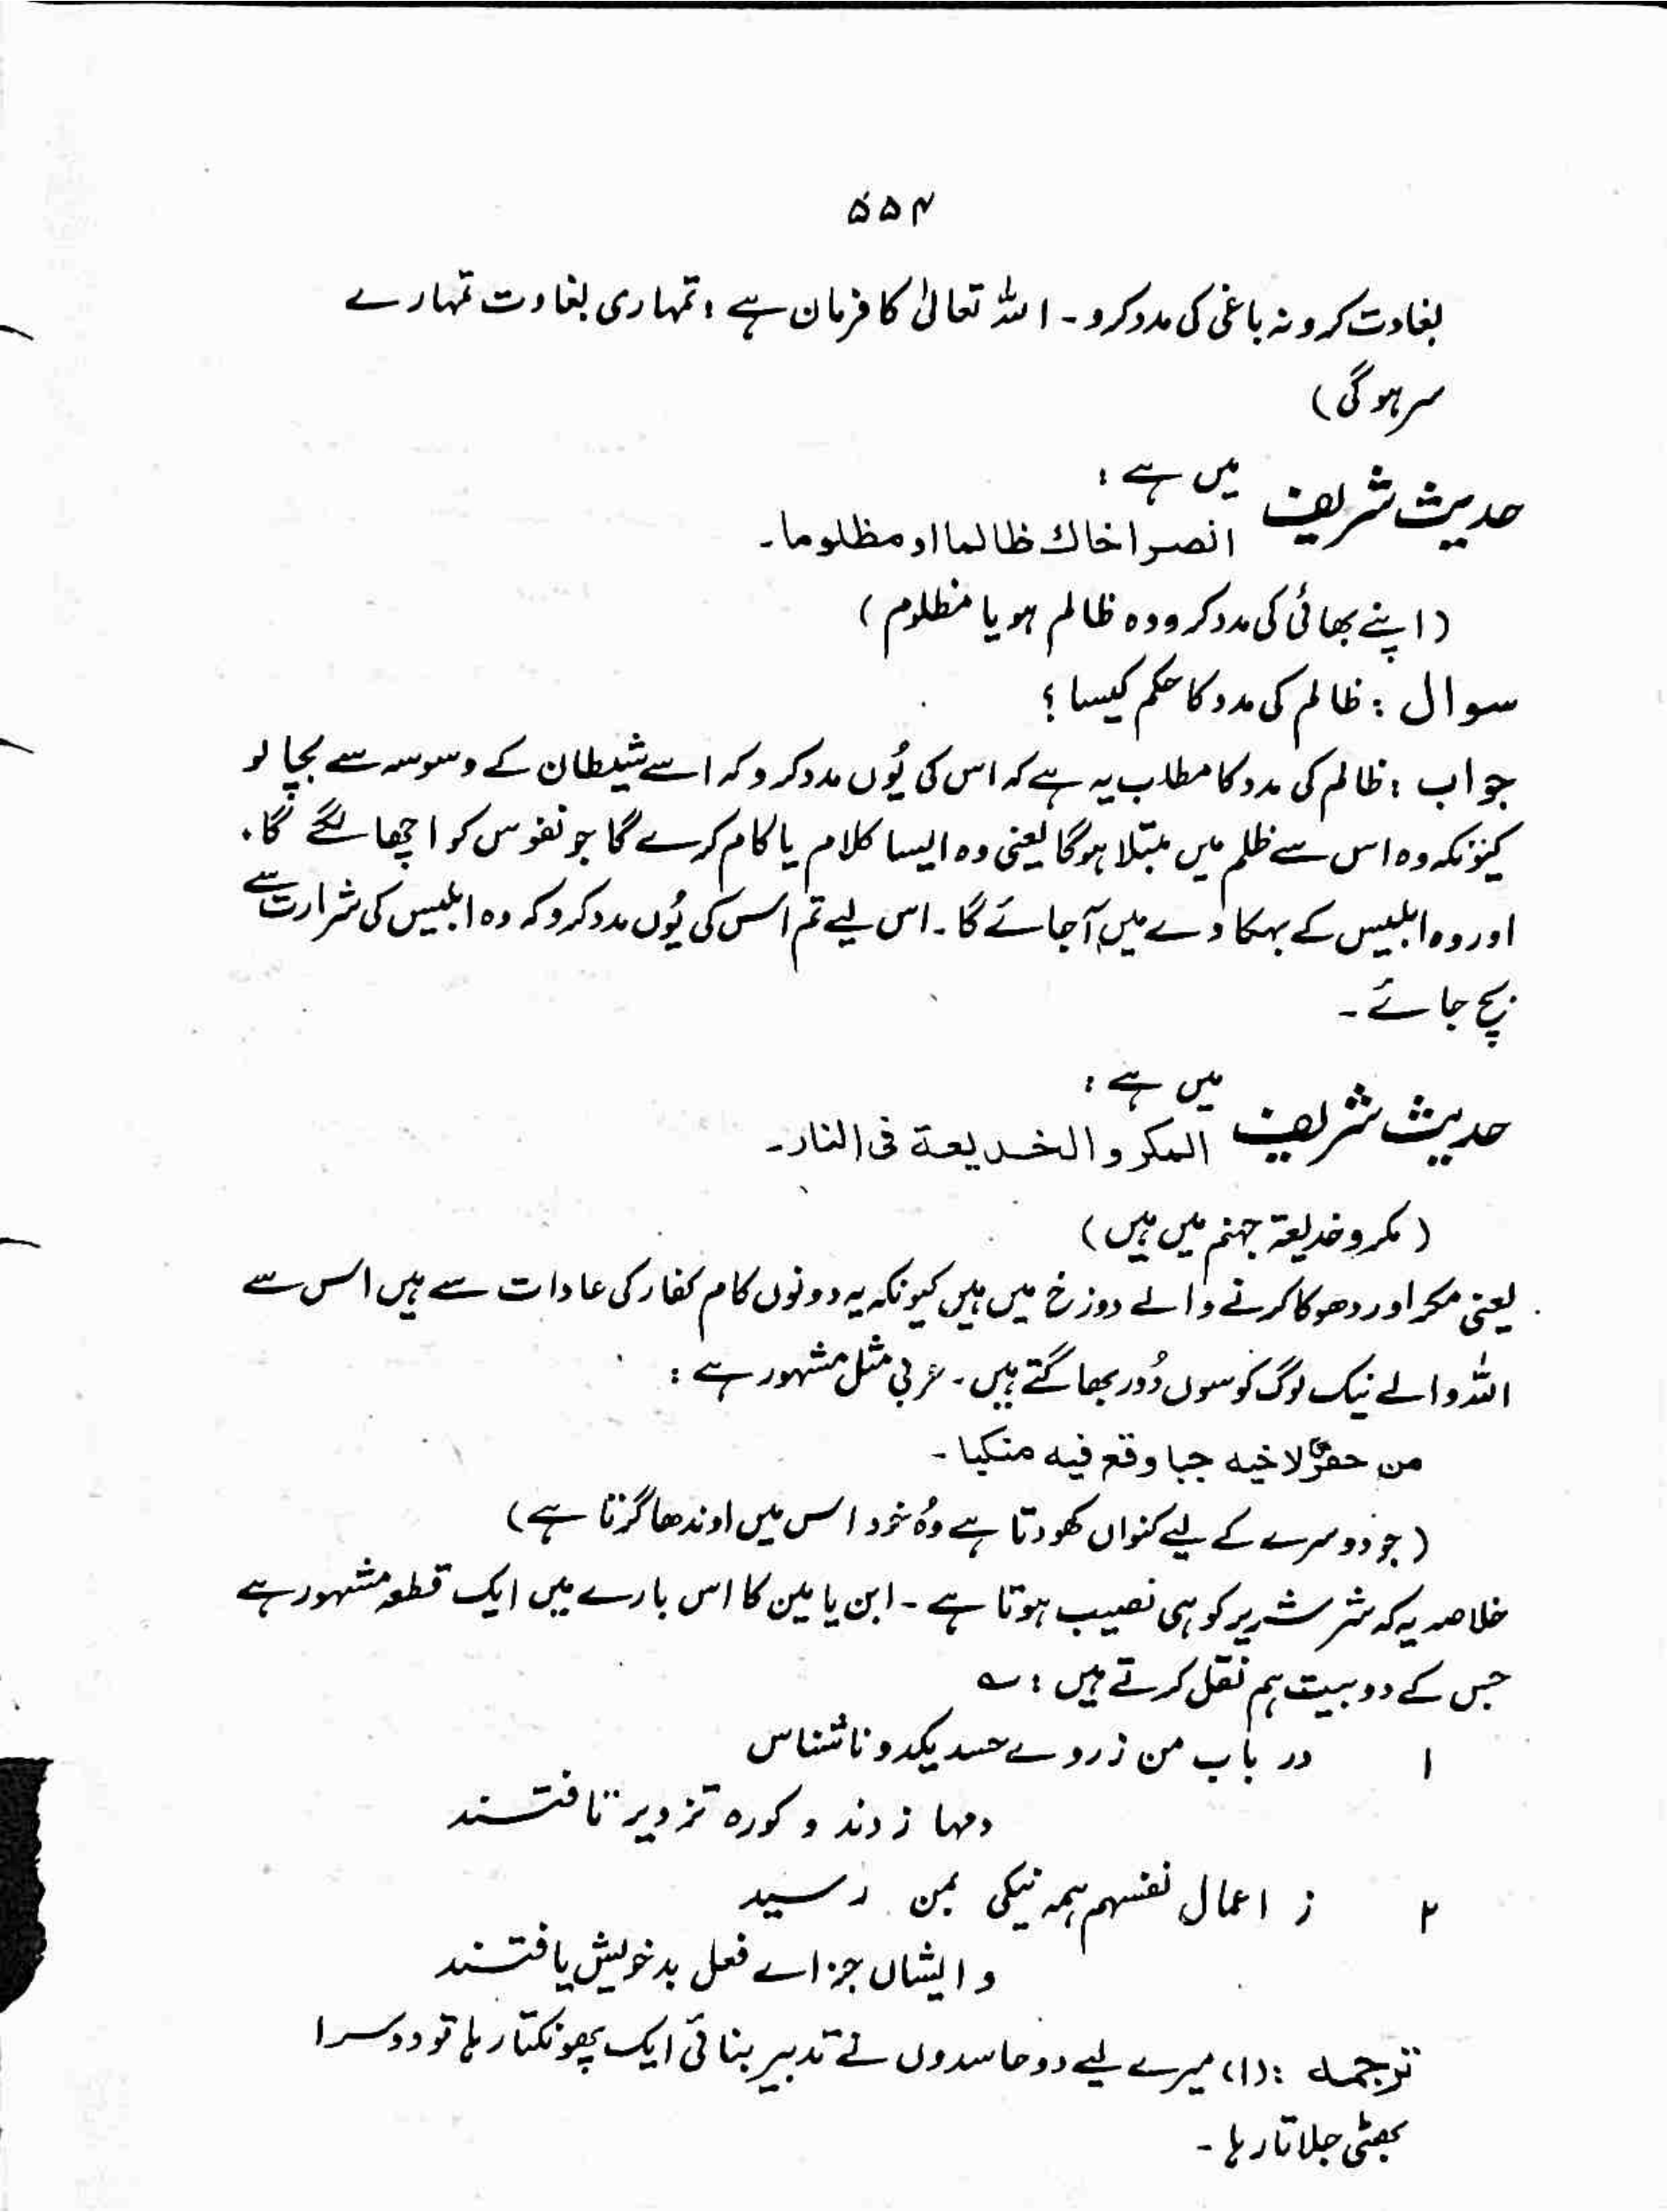 ۵۵۴
بغاوت کرو نہ باغی کی مدد کرو۔ اللہ تعالیٰ کا فرمان ہے : تمہاری بغاوت تمہارے
سر ہوگی)
حدیث شریف میں ہے :
انصر اخاك ظالما او مظلوما۔
(اپنے بھائی کی مدد کرو وہ ظالم ہو یا مظلوم)
سوال : ظالم کی مدد کا حکم کیسا ؟
جواب : ظالم کی مدد کا مطلب یہ ہے کہ اس کی یُوں مدد کرو کہ اسے شیطان کے وسوسہ سے بچا لو
کیونکہ وہ اس سے ظلم میں مبتلا ہوگا یعنی وہ ایسا کلام یا کام کرے گا جو نفوس کو اچھا لگے گا۔
اور وہ ابلیس کے بہکاوے میں آجائے گا۔ اس لیے تم اس کی یُوں مدد کرو کہ وہ ابلیس کی شرارت سے
بچ جائے۔
حدیث شریف میں ہے :
المکر و الخدیعة فی النار۔
(مکر و خدیعۃ جہنم میں ہیں)
یعنی مکر اور دھوکا کرنے والے دوزخ میں ہیں کیونکہ یہ دونوں کام کفار کی عادات سے ہیں اس سے
اللہ والے نیک لوگ کوسوں دُور بھاگتے ہیں۔ عربی مثل مشہور ہے :
من حفر لاخیه جبا وقع فیه منکبا۔
(جو دوسرے کے لیے کنواں کھودتا ہے وُہ خود اس میں اوندھا گرتا ہے)
خلاصہ یہ کہ شر شریر کو ہی نصیب ہوتا ہے۔ ابن یامین کا اس بارے میں ایک قطعہ مشہور ہے
جس کے دو بیت ہم نقل کرتے ہیں : ؎
۱ در باب من ز روے حسد یکدو ناشناس
دمہا زدند و کورہ تزویر تافتند
۲ ز اعمال نفسہم ہمہ نیکی بمن رسید
و ایشاں جزاے فعل بد خویش یافتند
ترجمہ : (۱) میرے لیے دو حاسدوں نے تدبیر بنائی ایک پھونکتا رہا تو دوسرا
بھٹی جلاتا رہا۔